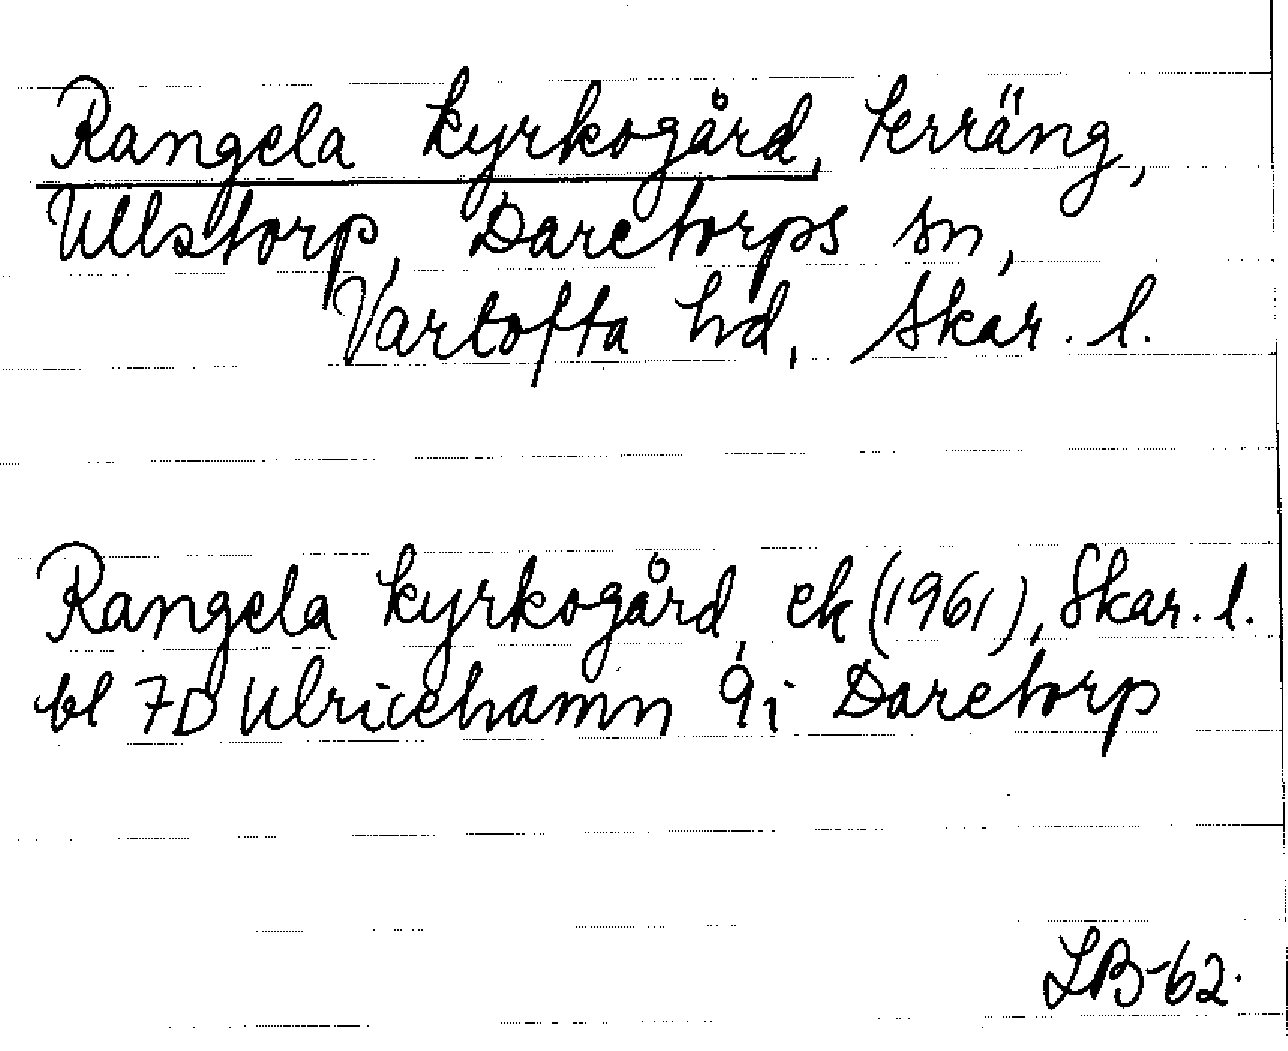 Rangela kyrkogård, terräng,
Ullstorp, Daretorps sn,
Vartofta hd, Skar. l.
Rangela kyrkogård, ek (1961), Skar. l.
bl 7D Ulricehamn 9i Daretorp
LB-62.